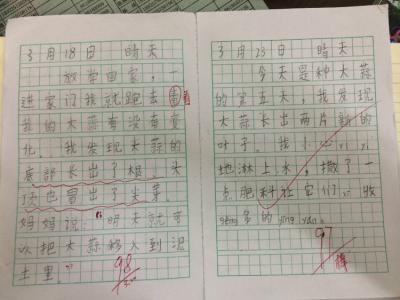 3月18日 晴天
放学回家，一
进家门我就跑去看
我的大蒜有没有变
化。我发现大蒜的
底部长出了根，头
顶也冒出了尖芽。
妈妈说："明天就可
以把大蒜移入到泥
土里。"
98
3月23日 晴天
今天是种大蒜
的第五天，我发现
大蒜长出两片的
叶子。我小心yì yì
地淋上水，撒了一
点肥料让它们吸收
多的yíng yǎng。
97
棒